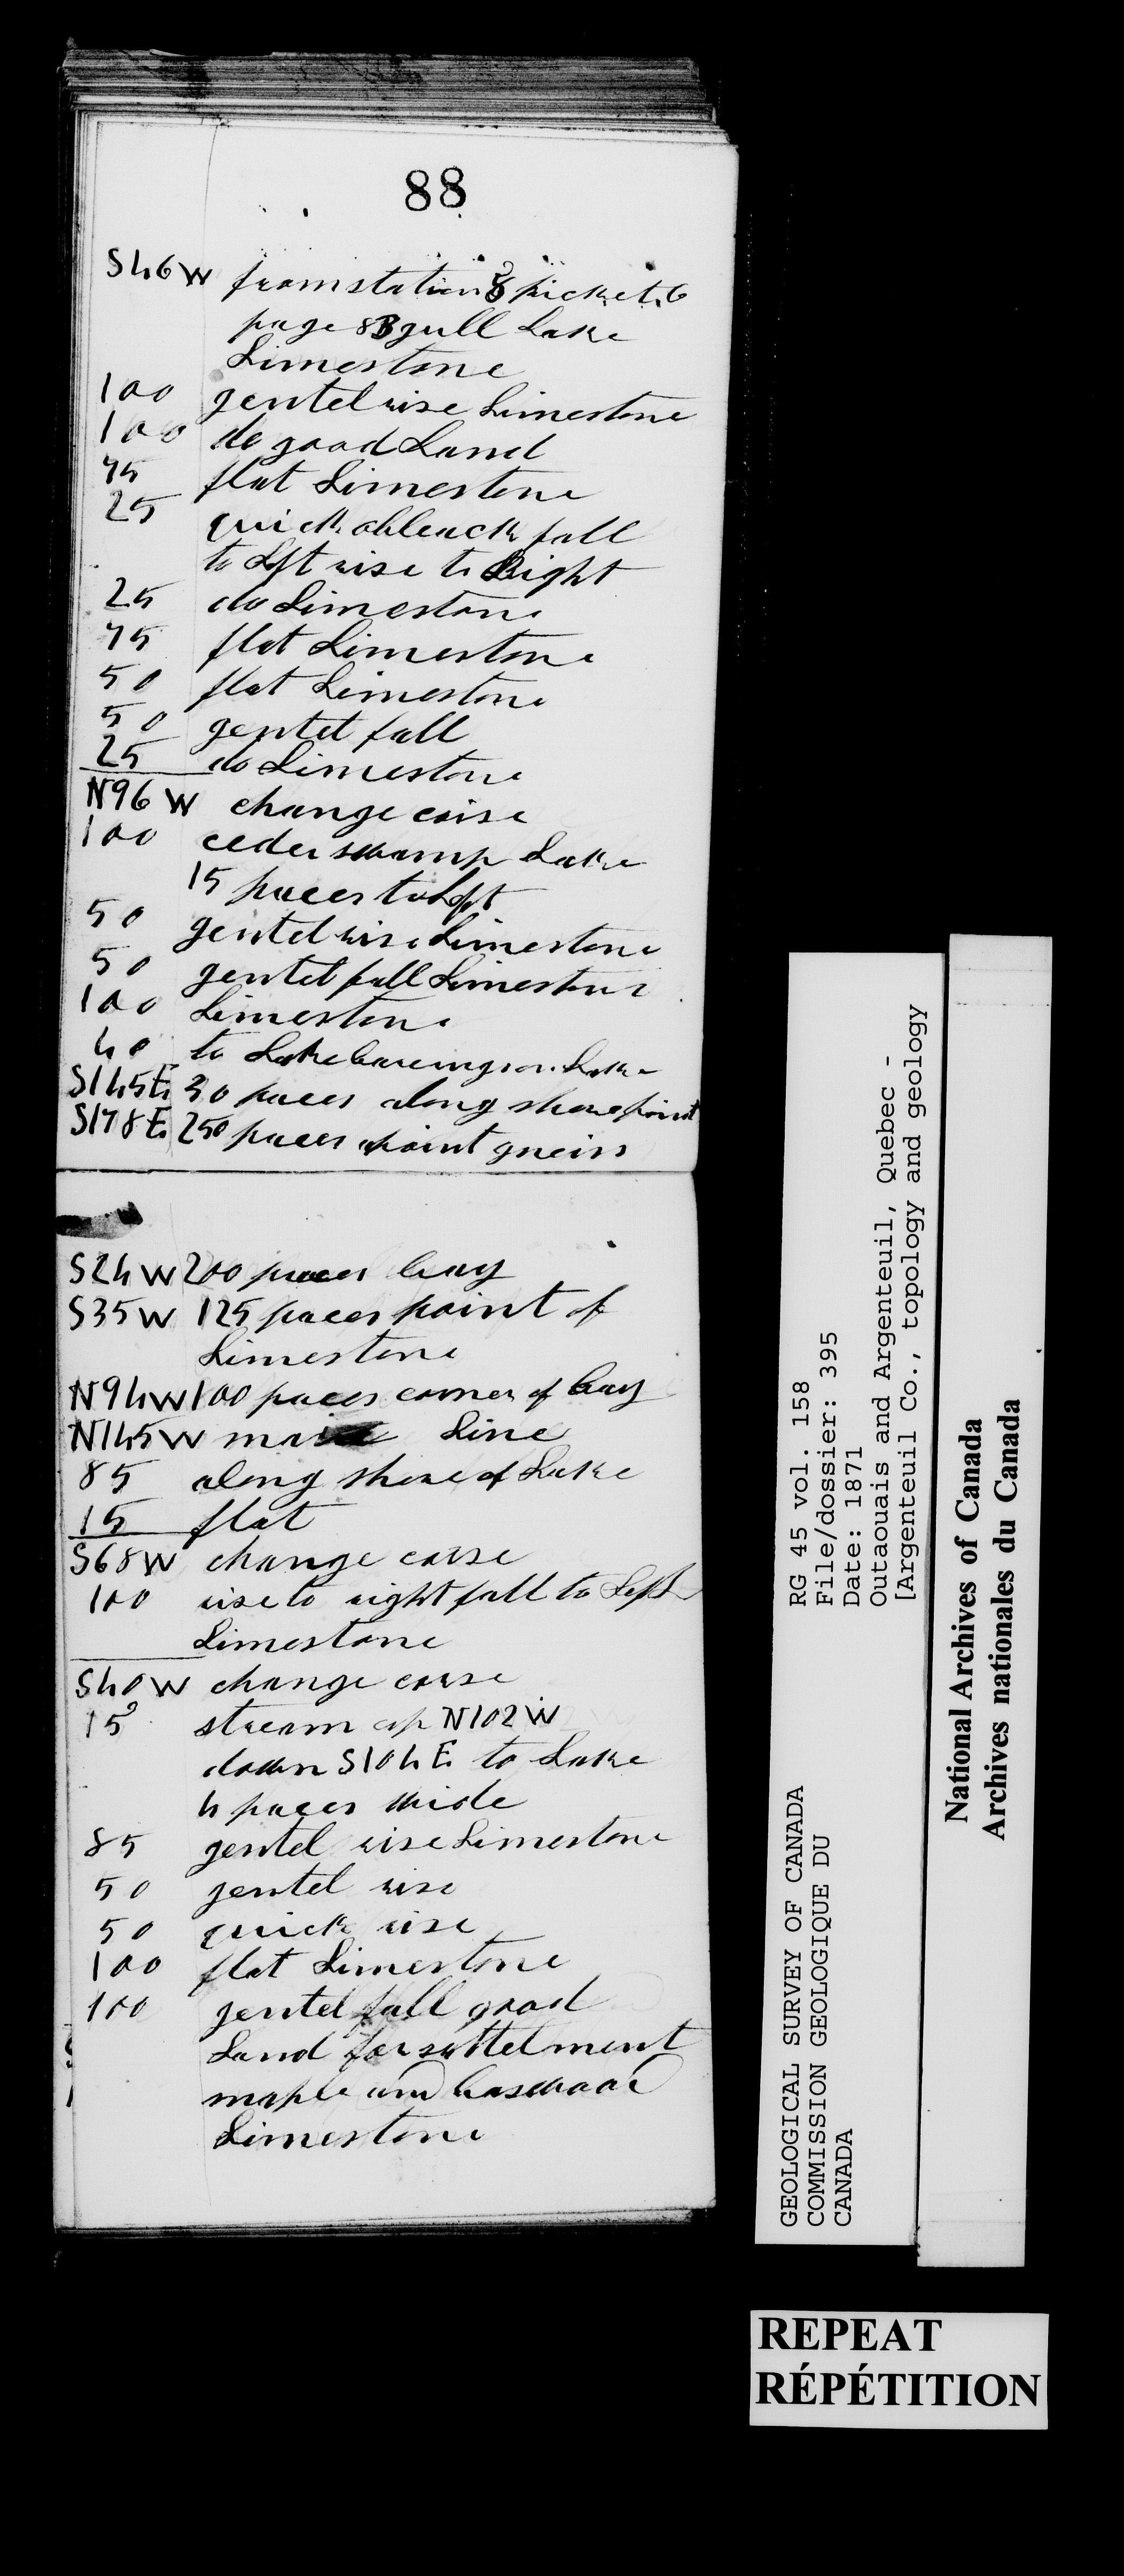 88
S46W from station 8 picket 6
page 83 gull Lake
Limestone
100 gentel rise Limestone
100 do good Land
75 flat Limestone
25 quick obleack fall
to Left rise to Right
25 do Limestone
75 flat Limestone
50 flat Limestone
50 gentel fall
25 do Limestone
N96W change corse
100 ceder swamp Lake
15 paces to Left
50 gentel rise Limestone
50 gentel fall Limestone
100 Limestone
40 to Lake bareings on Lake
S145E 30 paces along shore point
S178E 250 paces point gneiss
S24W 200 paces bay
S35W 125 paces point of
Limestone
N94W 100 paces corner of bay
N145W main Line
85 along shore of Lake
15 flat
S68W change corse
100 rise to right fall to Left
Limestone
S40W change corse
15 stream up N102W
down S104E to Lake
4 paces wide
85 gentel rise Limestone
50 gentel rise
50 quick rise
100 flat Limestone
100 gentel fall good
Land for settelment
maple and baswood
Limestone
GEOLOGICAL SURVEY OF CANADA
COMMISSION GEOLOGIQUE DU
CANADA
RG 45 vol. 158
File/dossier: 395
Date: 1871
Outaouais and Argenteuil, Quebec -
[Argenteuil Co., topology and geology
National Archives of Canada
Archives nationales du Canada
REPEAT
RÉPÉTITION